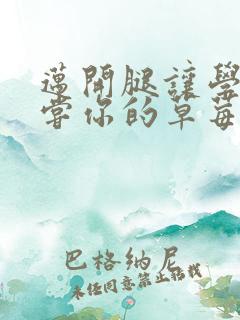 邁開腿讓學
嘗你的草莓
巴格納尼
未经同意禁止转载